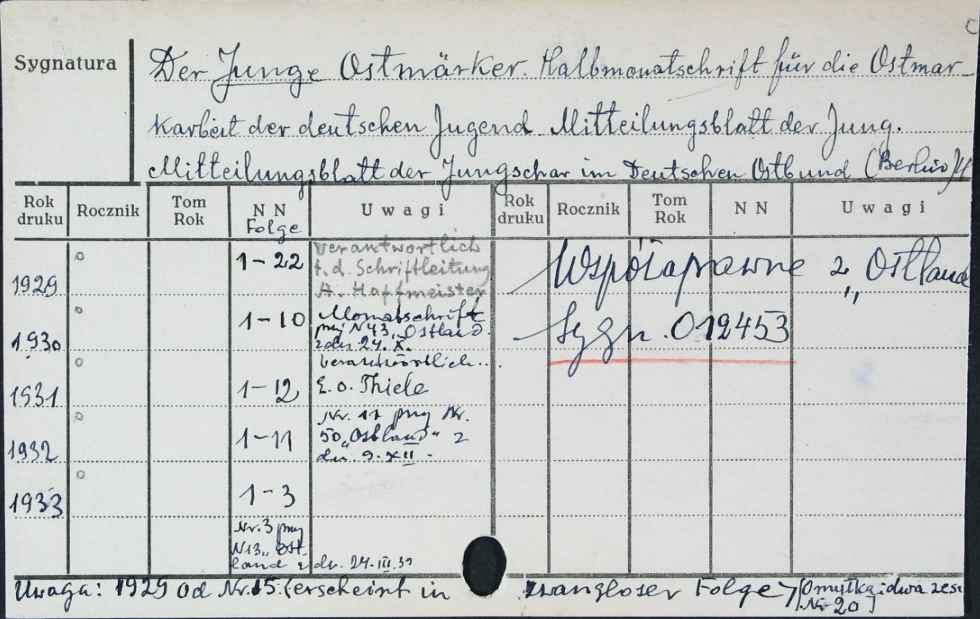 Sygnatura
Der Junge Ostmärker. Halbmonatschrift für die Ostmar-
karbeit der deutschen Jugend Mitteilungsblatt der Jung.
Mitteilungsblatt der Jungschar im Deutschen Ostbund (Berlin)
Rok druku Rocznik Tom Rok N N Folge Uwagi Rok druku Rocznik Tom Rok N N Uwagi
1929 1-22 verantwortlich
f. d. Schriftleitung
A. Hoffmeister
Współoprawne z „Ostland
1930 1-10 Monatsschrift
przy N 43 „Ostland
z dn. 24. X.
Sygn. 012453
verantwörtlich..
1931 1-12 E. O. Thiele
1932 1-11 Nr. 11 przy Nr.
50 „Ostland" z
dn. 9. XII.
1933 1-3
Nr. 3 przy
N 13 „Ost-
land z dn. 24. III. 33
Uwaga: 1929 od Nr. 15. (erscheint in zwangloser Folge) [Omyłka: dwa zesz
Nr 20]